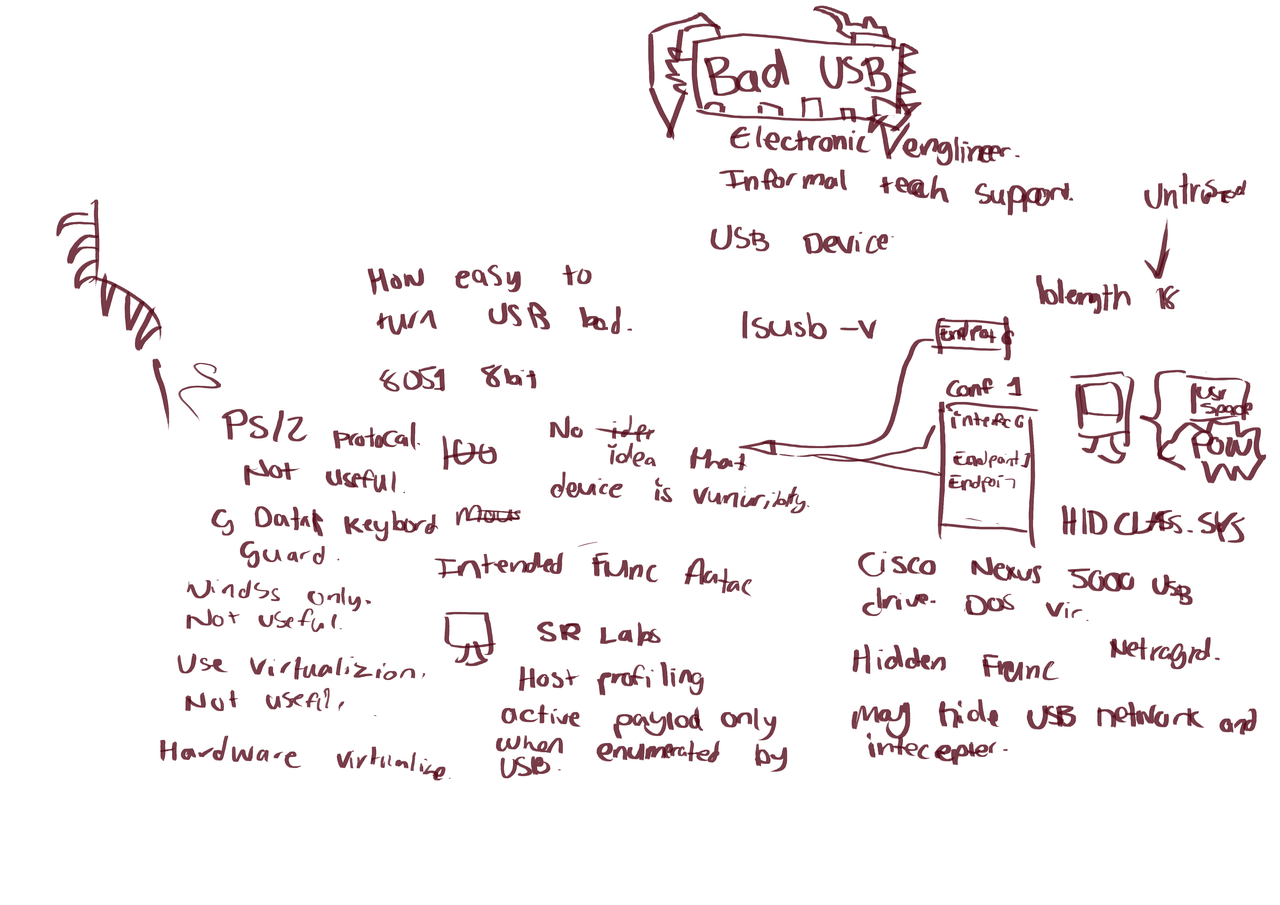 Bad USB
Electronic englineer.
Informal teah support.
USB Device
Untrusted
blength 18
How easy to
turn USB bad.
lsusb -v
8051 8bit
Conf 1
Endpoint 1
usr
space
PS/2 Protocal.
Not useful.
No
idea that
device is
HIDCLASS.SYS
G Data Keybord
Guard.
only.
Not useful.
Intended Func
Cisco Nexus 5000 USB
drive. DOS Vir.
SR Labs
Host profiling
active paylod only
when enumerated by
USB.
Hidden Func
May hide USB network and
intecepter.
Use virtualizion.
Not useful.
Hardware virtualize.